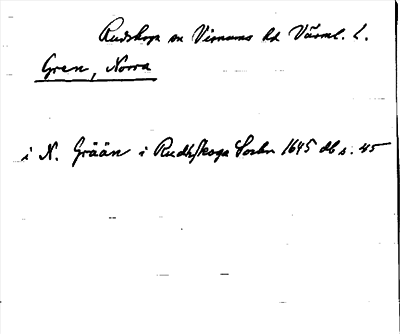 Rudskoga sn Visnums hd Värml. l.
Gren, Norra
i N. Grään i Rudhskoga Sochn 1645 db s. 45